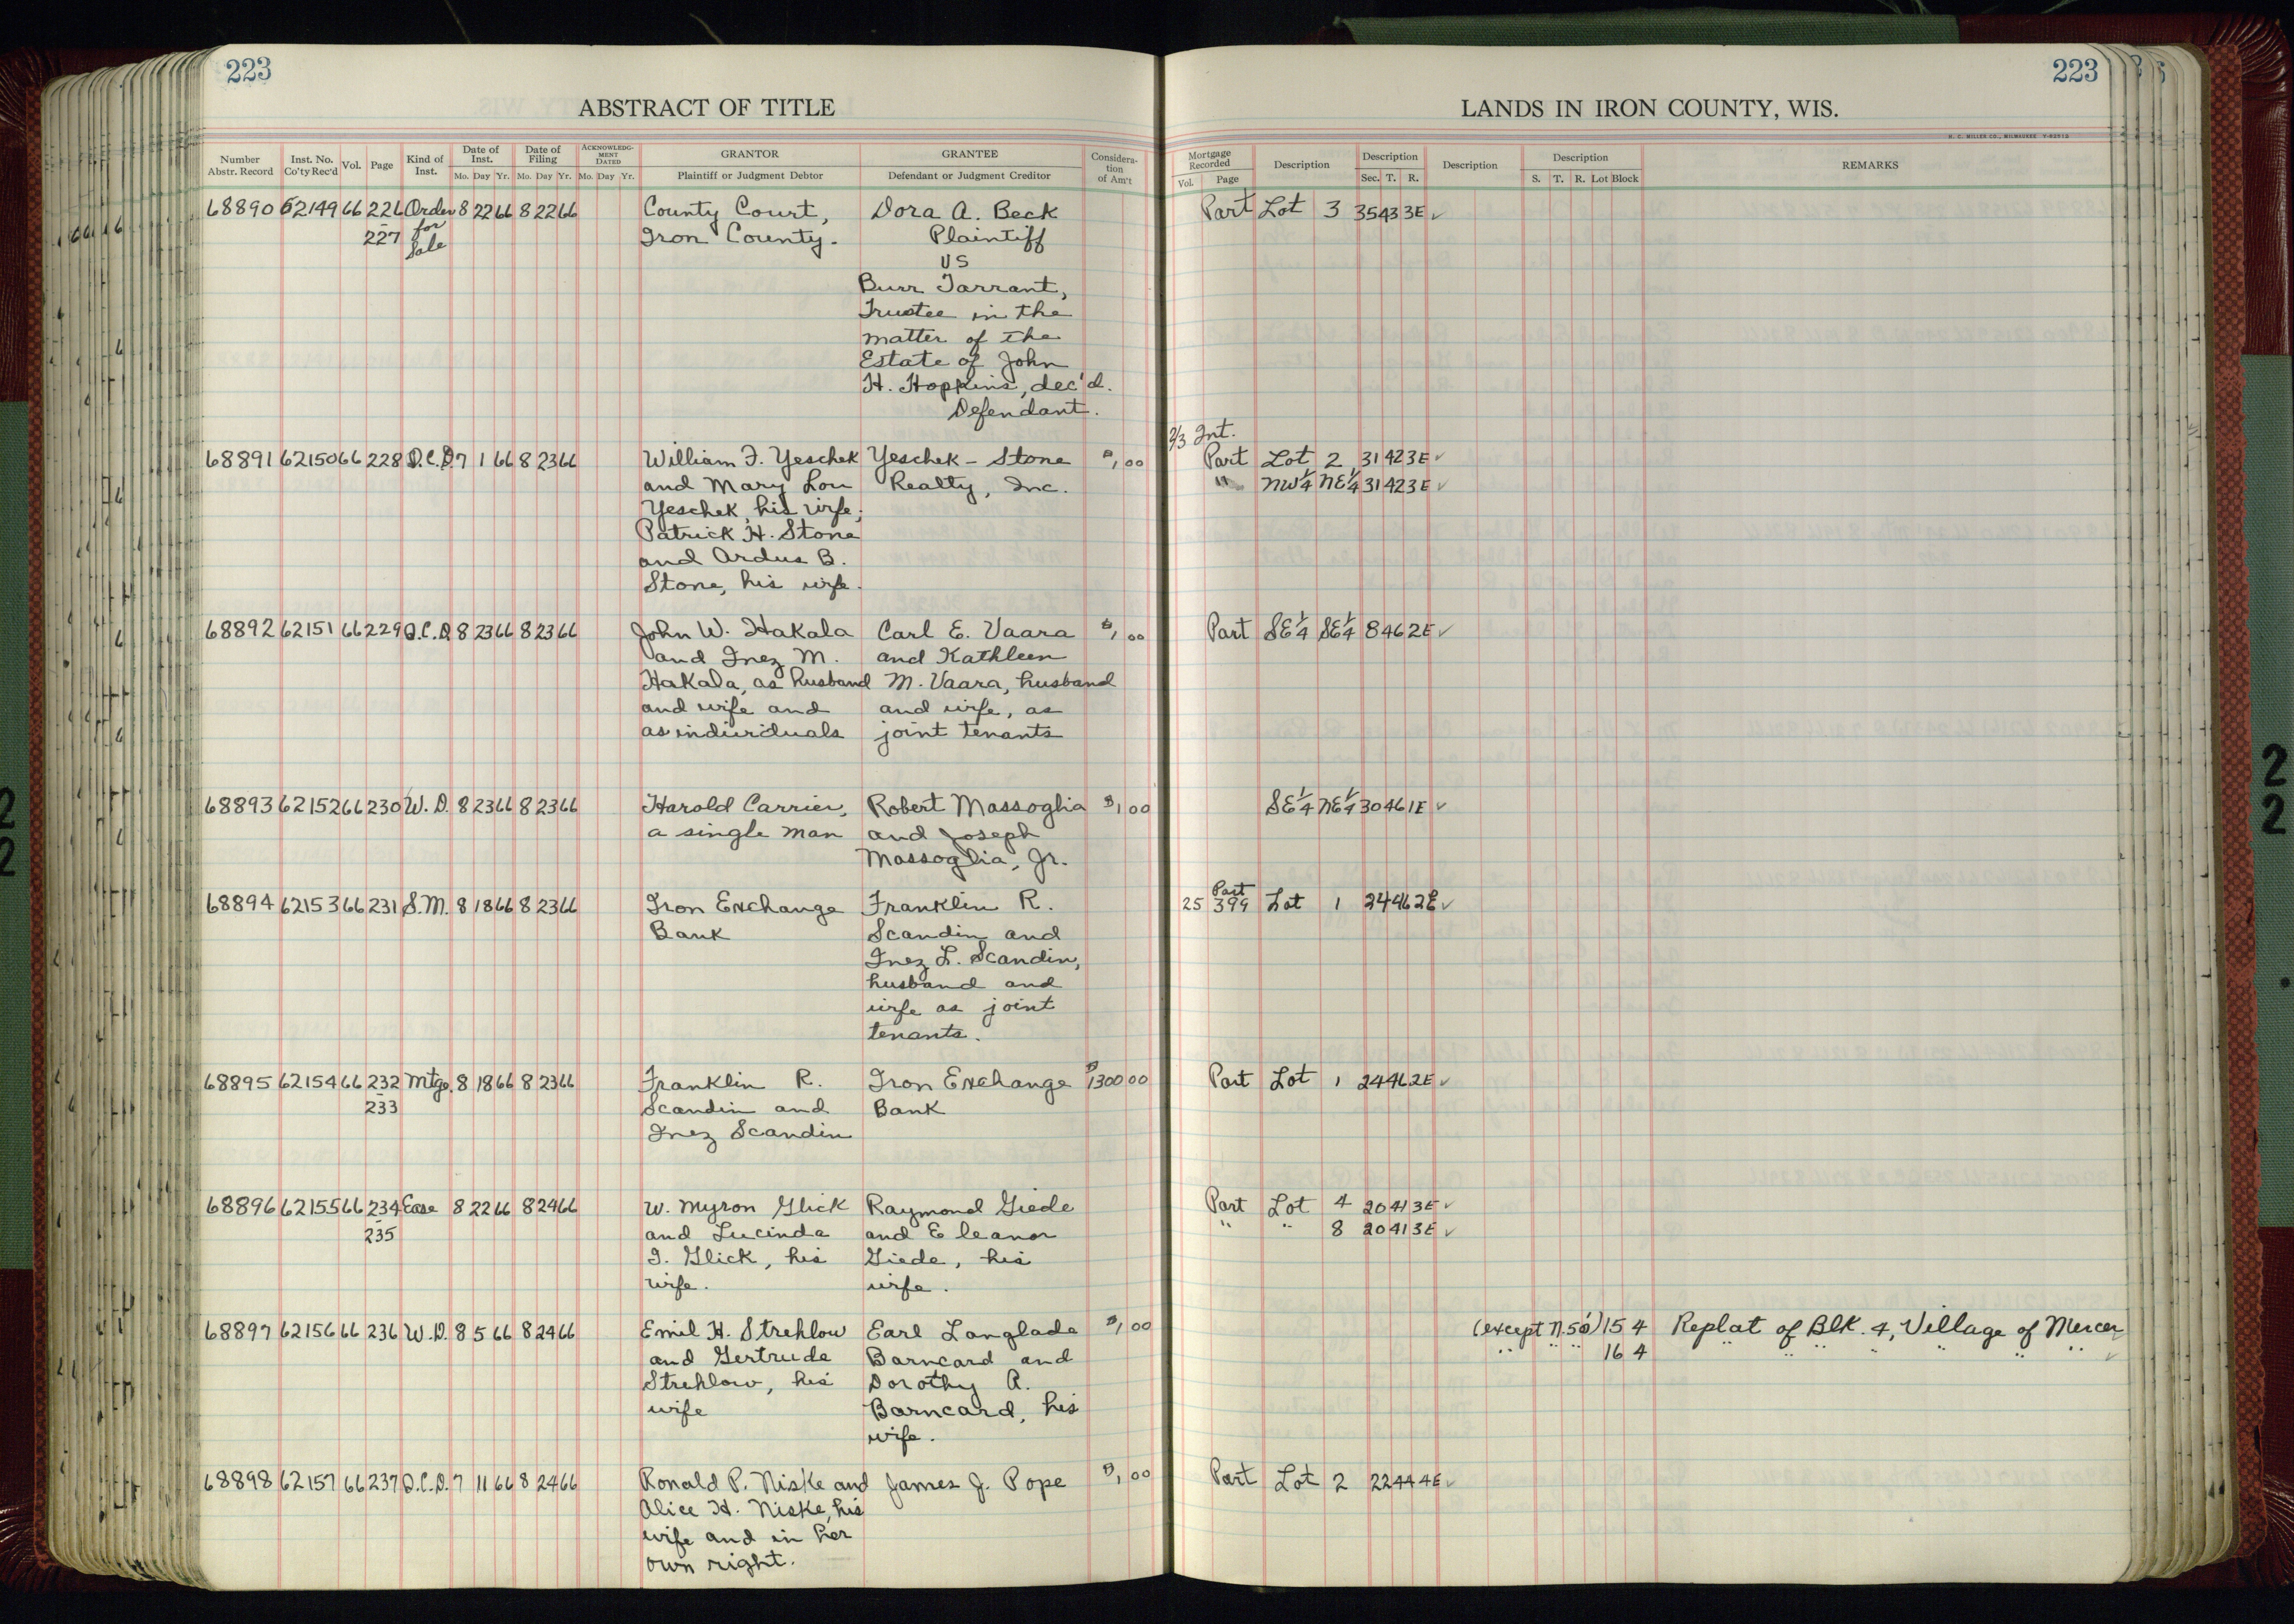 223
223
ABSTRACT OF TITLE
LANDS IN IRON COUNTY, WIS.
H. C. MILLER CO., MILWAUKEE
Number Abstr. Record | Inst. No. Co'ty Rec'd | Vol. | Page | Kind of Inst. | Date of Inst. Mo. Day Yr. | Date of Filing Mo. Day Yr. | ACKNOWLEDGMENT DATED Mo. Day Yr. | GRANTOR Plaintiff or Judgment Debtor | GRANTEE Defendant or Judgment Creditor | Consideration of Am't | Mortgage Recorded Vol. Page | Description | Description Sec. T. R. | Description | Description S. T. R. Lot Block | REMARKS
68890 62149 66 226 Order 8 22 66 8 22 66 County Court, Dora A. Beck Part Lot 3 35 43 3E ✓
- 227 for Sale Iron County. Plaintiff
VS
Burr Tarrant,
Trustee in the
matter of the
Estate of John
H. Hopkins, dec'd.
Defendant.
2/3 Int.
68891 62150 66 228 Q.C.D. 7 1 66 8 23 66 William F. Yeschek Yeschek - Stone $1,00 Part Lot 2 31 42 3E ✓
and Mary Lou Realty, Inc. " NW¼ NE¼ 31 42 3E ✓
Yeschek, his wife;
Patrick H. Stone
and Ardus B.
Stone, his wife.
68892 62151 66 229 Q.C.D. 8 23 66 8 23 66 John W. Hakala Carl E. Vaara $1,00 Part SE¼ SE¼ 8 46 2E ✓
and Inez M. and Kathleen
Hakala, as husband M. Vaara, husband
and wife and and wife, as
as individuals joint tenants
68893 62152 66 230 W.D. 8 23 66 8 23 66 Harold Carrier, Robert Massoglia $1 00 SE¼ NE¼ 30 46 1E ✓
a single man and Joseph
Massoglia, Jr.
68894 62153 66 231 S.M. 8 18 66 8 23 66 Iron Exchange Franklin R. 25 Part 399 Lot 1 24 46 2E ✓
Bank Scandin and
Inez L. Scandin,
husband and
wife as joint
tenants.
68895 62154 66 232 Mtge. 8 18 66 8 23 66 Franklin R. Iron Exchange $1300 00 Part Lot 1 24 46 2E ✓
- 233 Scandin and Bank
Inez Scandin
68896 62155 66 234 Ease 8 22 66 8 24 66 W. Myron Glick Raymond Giede Part Lot 4 20 41 3E ✓
- 235 and Lucinda and Eleanor " " 8 20 41 3E ✓
I. Glick, his Giede, his
wife. wife.
68897 62156 66 236 W.D. 8 5 66 8 24 66 Emil H. Strehlow Earl Langlade $1,00 (except N.50') 15 4 Replat of Blk. 4, Village of Mercer ✓
and Gertrude Barncard and " " " 16 4 " " " " " " " ✓
Strehlow, his Dorothy A.
wife Barncard, his
wife.
68898 62157 66 237 Q.C.D. 7 11 66 8 24 66 Ronald P. Niske and James J. Pope $1,00 Part Lot 2 22 44 4E ✓
Alice H. Niske, his
wife and in her
own right.